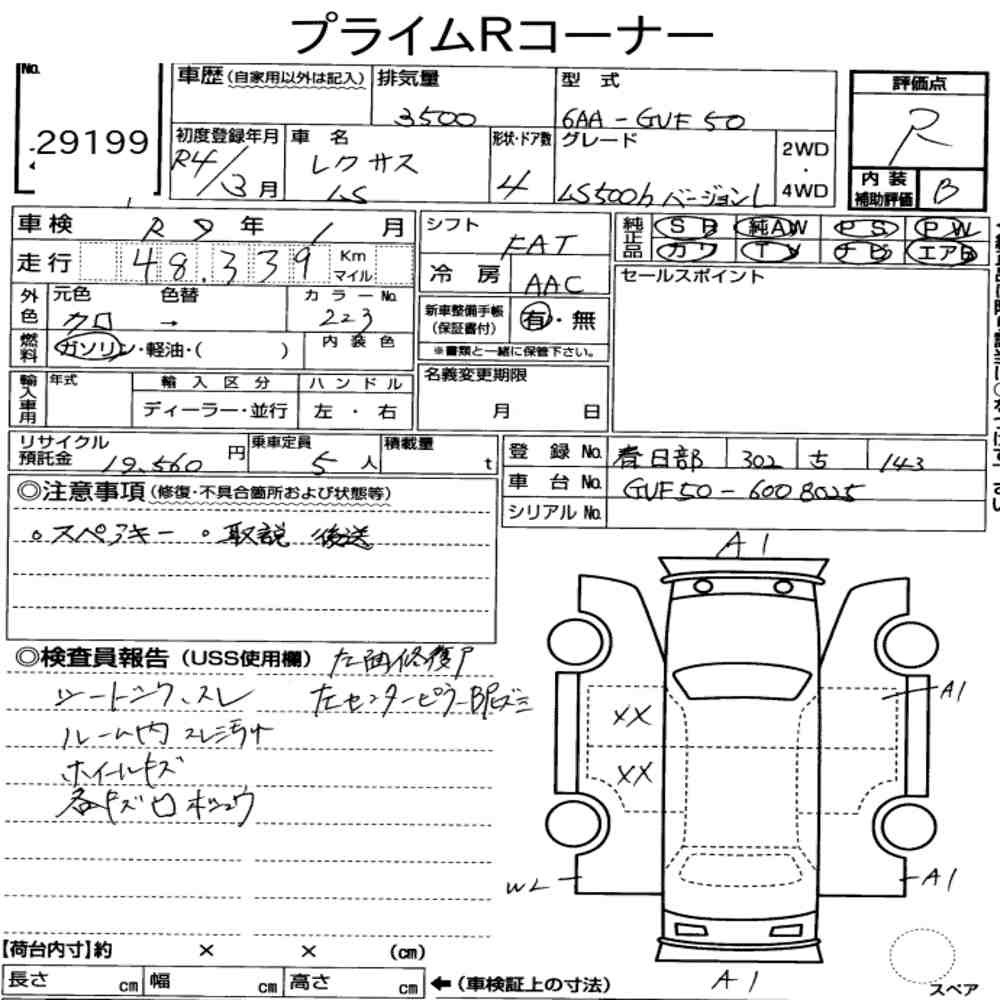 プライムRコーナー
No. 29199
車歴 (自家用以外は記入) 排気量 3500
型式 6AA-GUF50
評価点 R
初度登録年月 R4/3月
車名 レクサス LS
形状・ドア数 4
グレード LS500h バージョンL
2WD・4WD
内装補助評価 B
車検 R 9年 1月
走行 48.339 Km マイル
シフト FAT
冷房 AAC
純正品 SR 純AW PS PW
カワ TV ナビ エアB
外色 元色 クロ → 色替 カラーNo. 223
新車整備手帳(保証書付) 有・無
※書類と一緒に保管下さい。
セールスポイント
燃料 ガソリン・軽油・( )
内装色
輸入車用 年式 輸入区分 ハンドル
ディーラー・並行 左・右
名義変更期限 月 日
リサイクル預託金 19.560円
乗車定員 5人
積載量 t
登録No. 春日部 302 ち 143
車台No. GUF50-6008025
シリアルNo.
◎注意事項 (修復・不具合箇所および状態等)
○スペアキー ○取説 後送
◎検査員報告 (USS使用欄)
左面修復ア
シートシワ、スレ 左センターピラーBFズミ
ルーム内 スレ汚れ
ホイールキズ
各キズ凹 ホシュウ
A1
XX
XX
A1
WL
A1
A1
【荷台内寸】約 × × (cm)
長さ cm 幅 cm 高さ cm ←(車検証上の寸法)
スペア